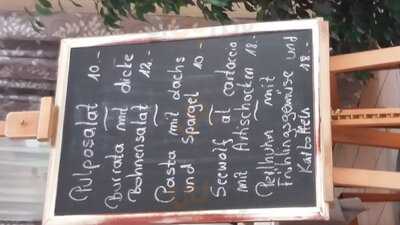 Pulposalat 10.-
Burrata mit dicke
Bohnensalat 12.-
Pasta mit dachs
und spargel 10-
Seewolf al cartoccio
mit Artischocken 18.-
Perlhuhn mit
Frühlingsgemüse und
Kartoffeln 18.-